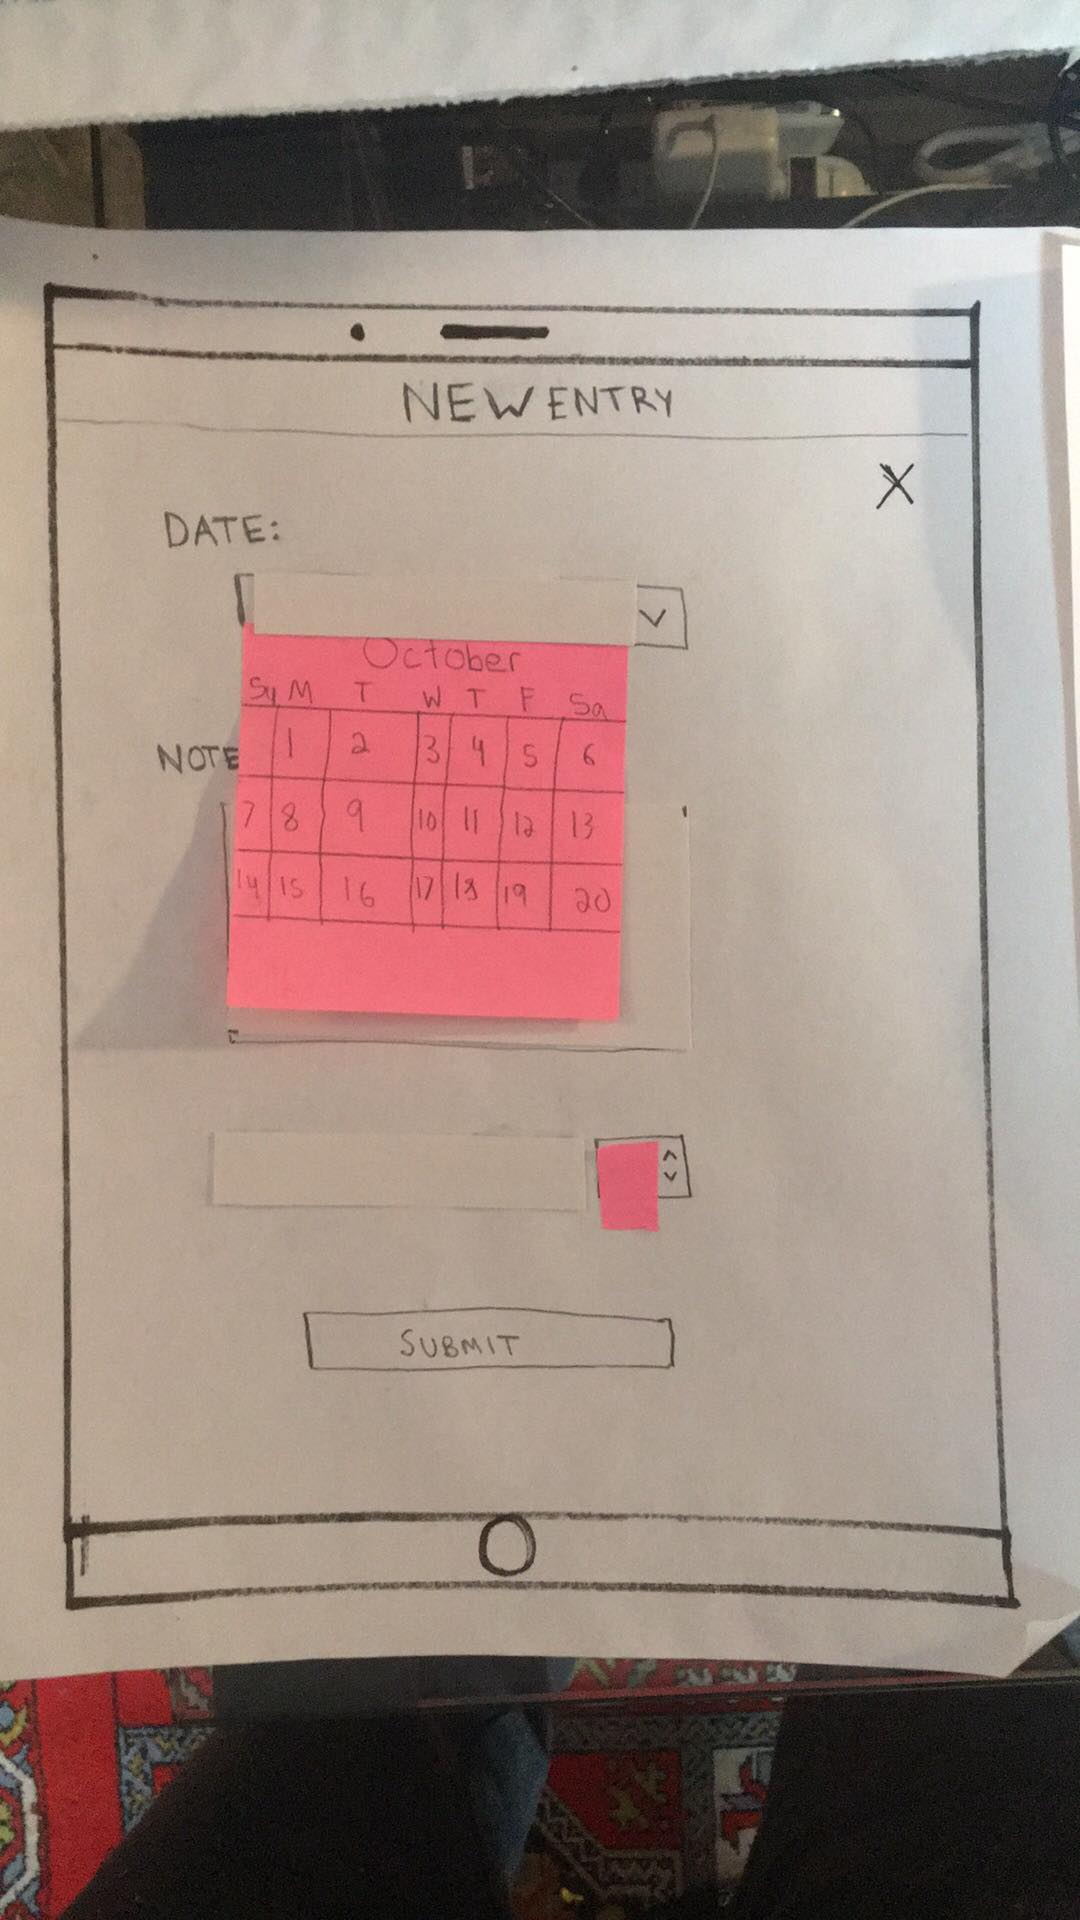 NEW ENTRY
X
DATE:
October
Su M T W T F Sa
1 2 3 4 5 6
NOTE
7 8 9 10 11 12 13
14 15 16 17 18 19 20
SUBMIT